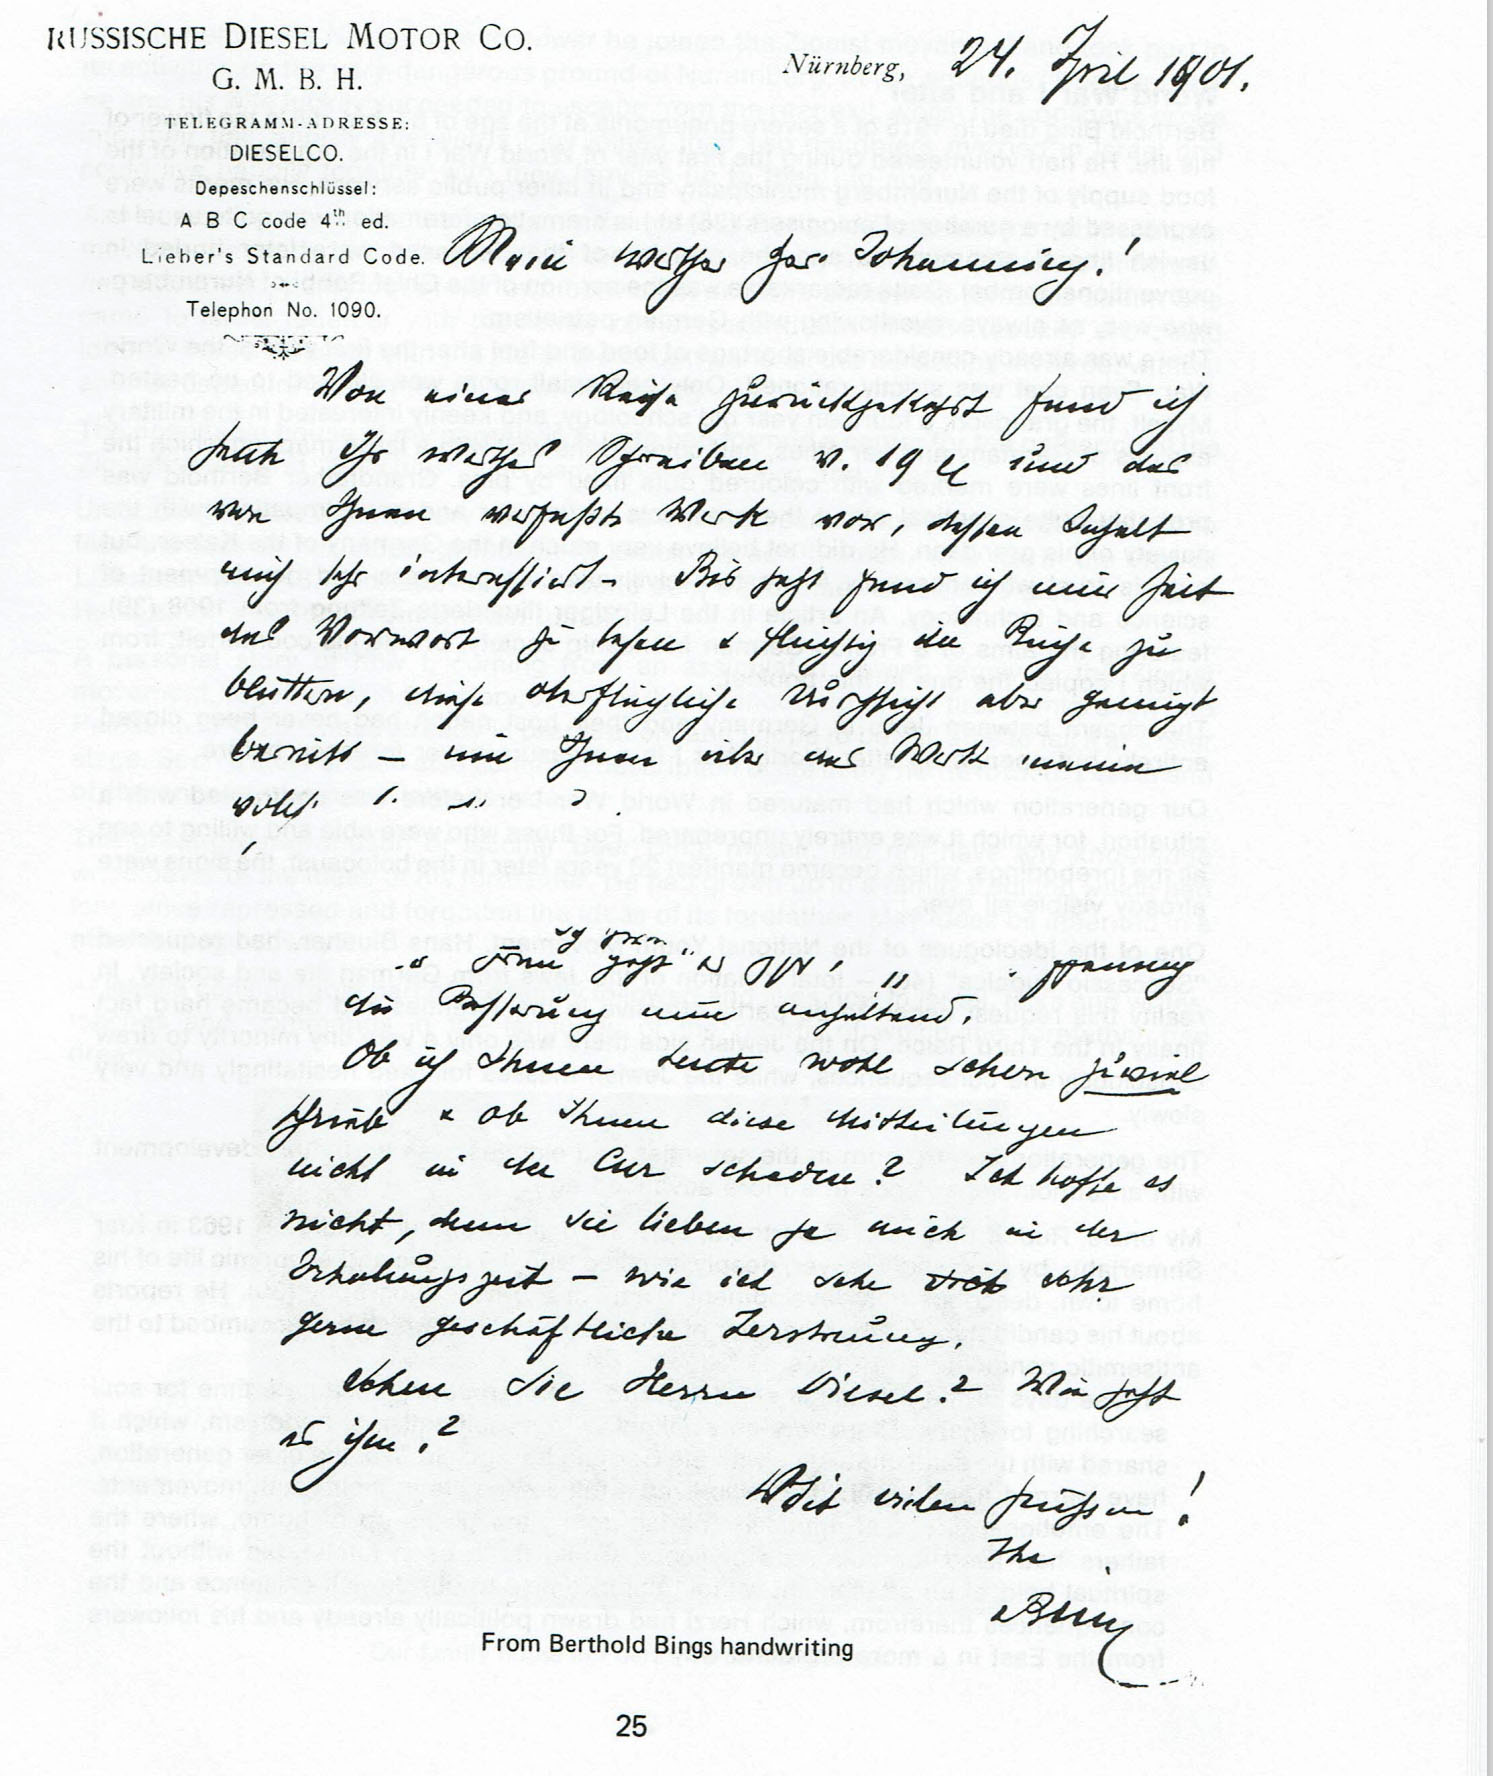 RUSSISCHE DIESEL MOTOR CO.
G. M. B. H.
TELEGRAMM-ADRESSE:
DIESELCO.
Depeschenschlüssel:
A B C code 4th ed.
Lieber's Standard Code.
Telephon No. 1090.
Nürnberg, 24. April 1901.
Mein werther Herr Johanning!
Von einer Reise zurückgekehrt fand ich
heute Ihr werthes Schreiben v. 19 und das
von Ihnen verfaßte Werk vor, dessen Inhalt
mich sehr interessiert - Bis jetzt fand ich nur Zeit
das Vorwort zu lesen & flüchtig die Reihe zu
blättern, diese oberflächliche aber genügt
bereits — um Ihnen über das Werk meine
die Besserung nun anhaltend.
Ob ich Ihnen heute wohl schon zuviel
schreibe & ob Ihnen diese Mitteilungen
nicht in der Cur schaden? Ich hoffe es
nicht, denn Sie lieben ja auch in der
Erholungszeit — wie ich sehe sehr
gerne geschäftliche Zerstreuung.
Sehen Sie Herrn Diesel? Wie geht
es ihm?
Mit vielen Grüssen!
Ihr
Bing
From Berthold Bings handwriting
25